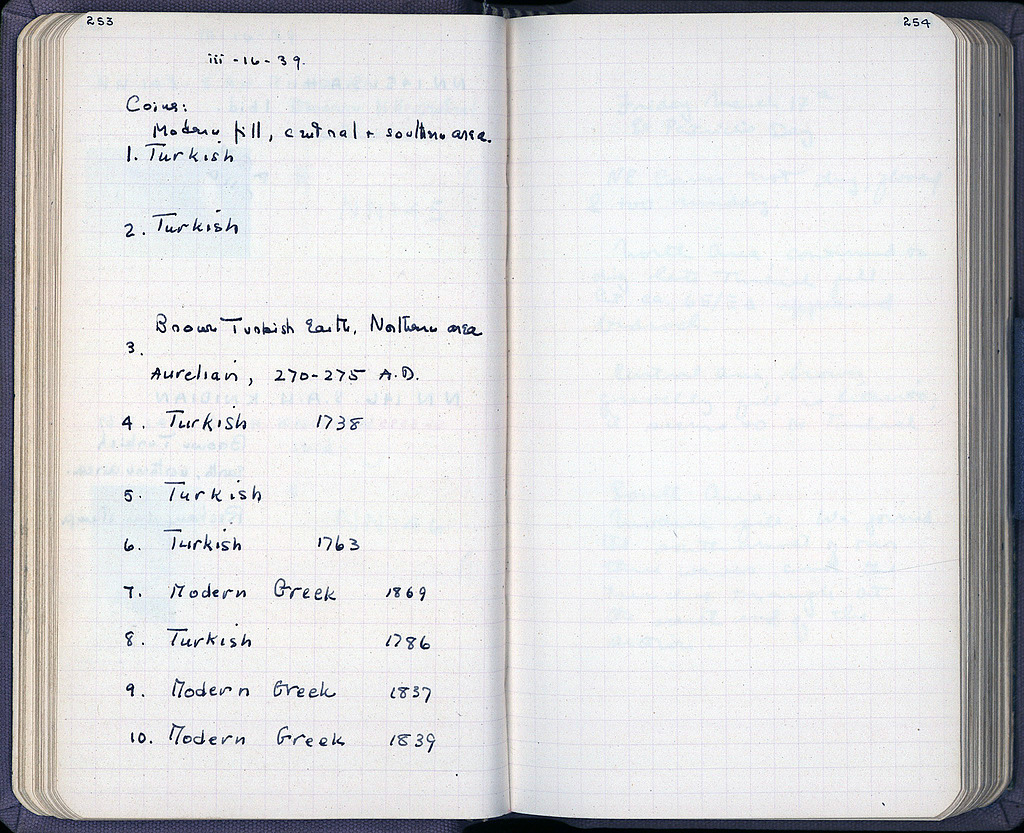 253
254
iii-16-39.
Coins:
Modern fill, central + southern area.
1. Turkish
2. Turkish
Brown Turkish Earth, Northern area
3.
Aurelian, 270-275 A.D.
4. Turkish 1738
5. Turkish
6. Turkish 1763
7. Modern Greek 1869
8. Turkish 1786
9. Modern Greek 1837
10. Modern Greek 1839